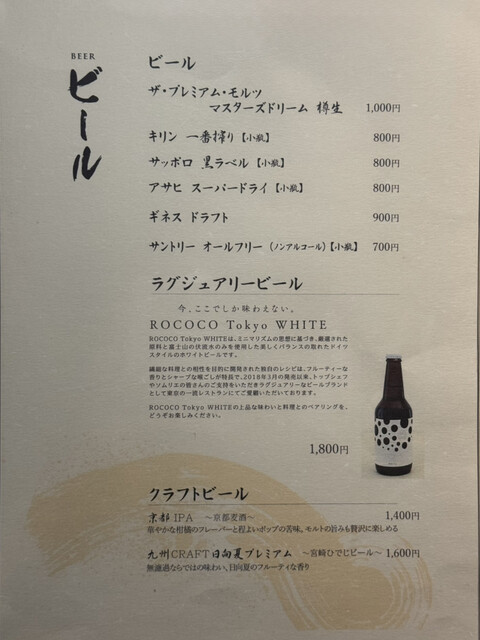 BEER
ビール
ビール
ザ・プレミアム・モルツ
マスターズドリーム 樽生 1,000円
キリン 一番搾り【小瓶】 800円
サッポロ 黒ラベル【小瓶】 800円
アサヒ スーパードライ【小瓶】 800円
ギネス ドラフト 900円
サントリー オールフリー(ノンアルコール)【小瓶】 700円
ラグジュアリービール
今、ここでしか味わえない。
ROCOCO Tokyo WHITE
ROCOCO Tokyo WHITEは、ミニマリズムの思想に基づき、厳選された
原料と富士山の伏流水のみを使用した美しくバランスの取れたドイツ
スタイルのホワイトビールです。
繊細な料理との相性を目的に開発された独自のレシピは、フルーティーな
香りとシャープな喉ごしが特長で、2018年3月の発売以来、トップシェフ
やソムリエの皆さんのご支持をいただきラグジュアリーなビールブランド
として東京の一流レストランにてご愛顧いただいております。
ROCOCO Tokyo WHITEの上品な味わいと料理とのペアリングを、
どうぞお楽しみください。
1,800円
クラフトビール
京都 IPA ～京都麦酒～ 1,400円
華やかな柑橘のフレーバーと程よいポップの苦味。モルトの旨みも贅沢に楽しめる
九州CRAFT日向夏プレミアム ～宮崎ひでじビール～ 1,600円
無濾過ならではの味わい。日向夏のフルーティな香り